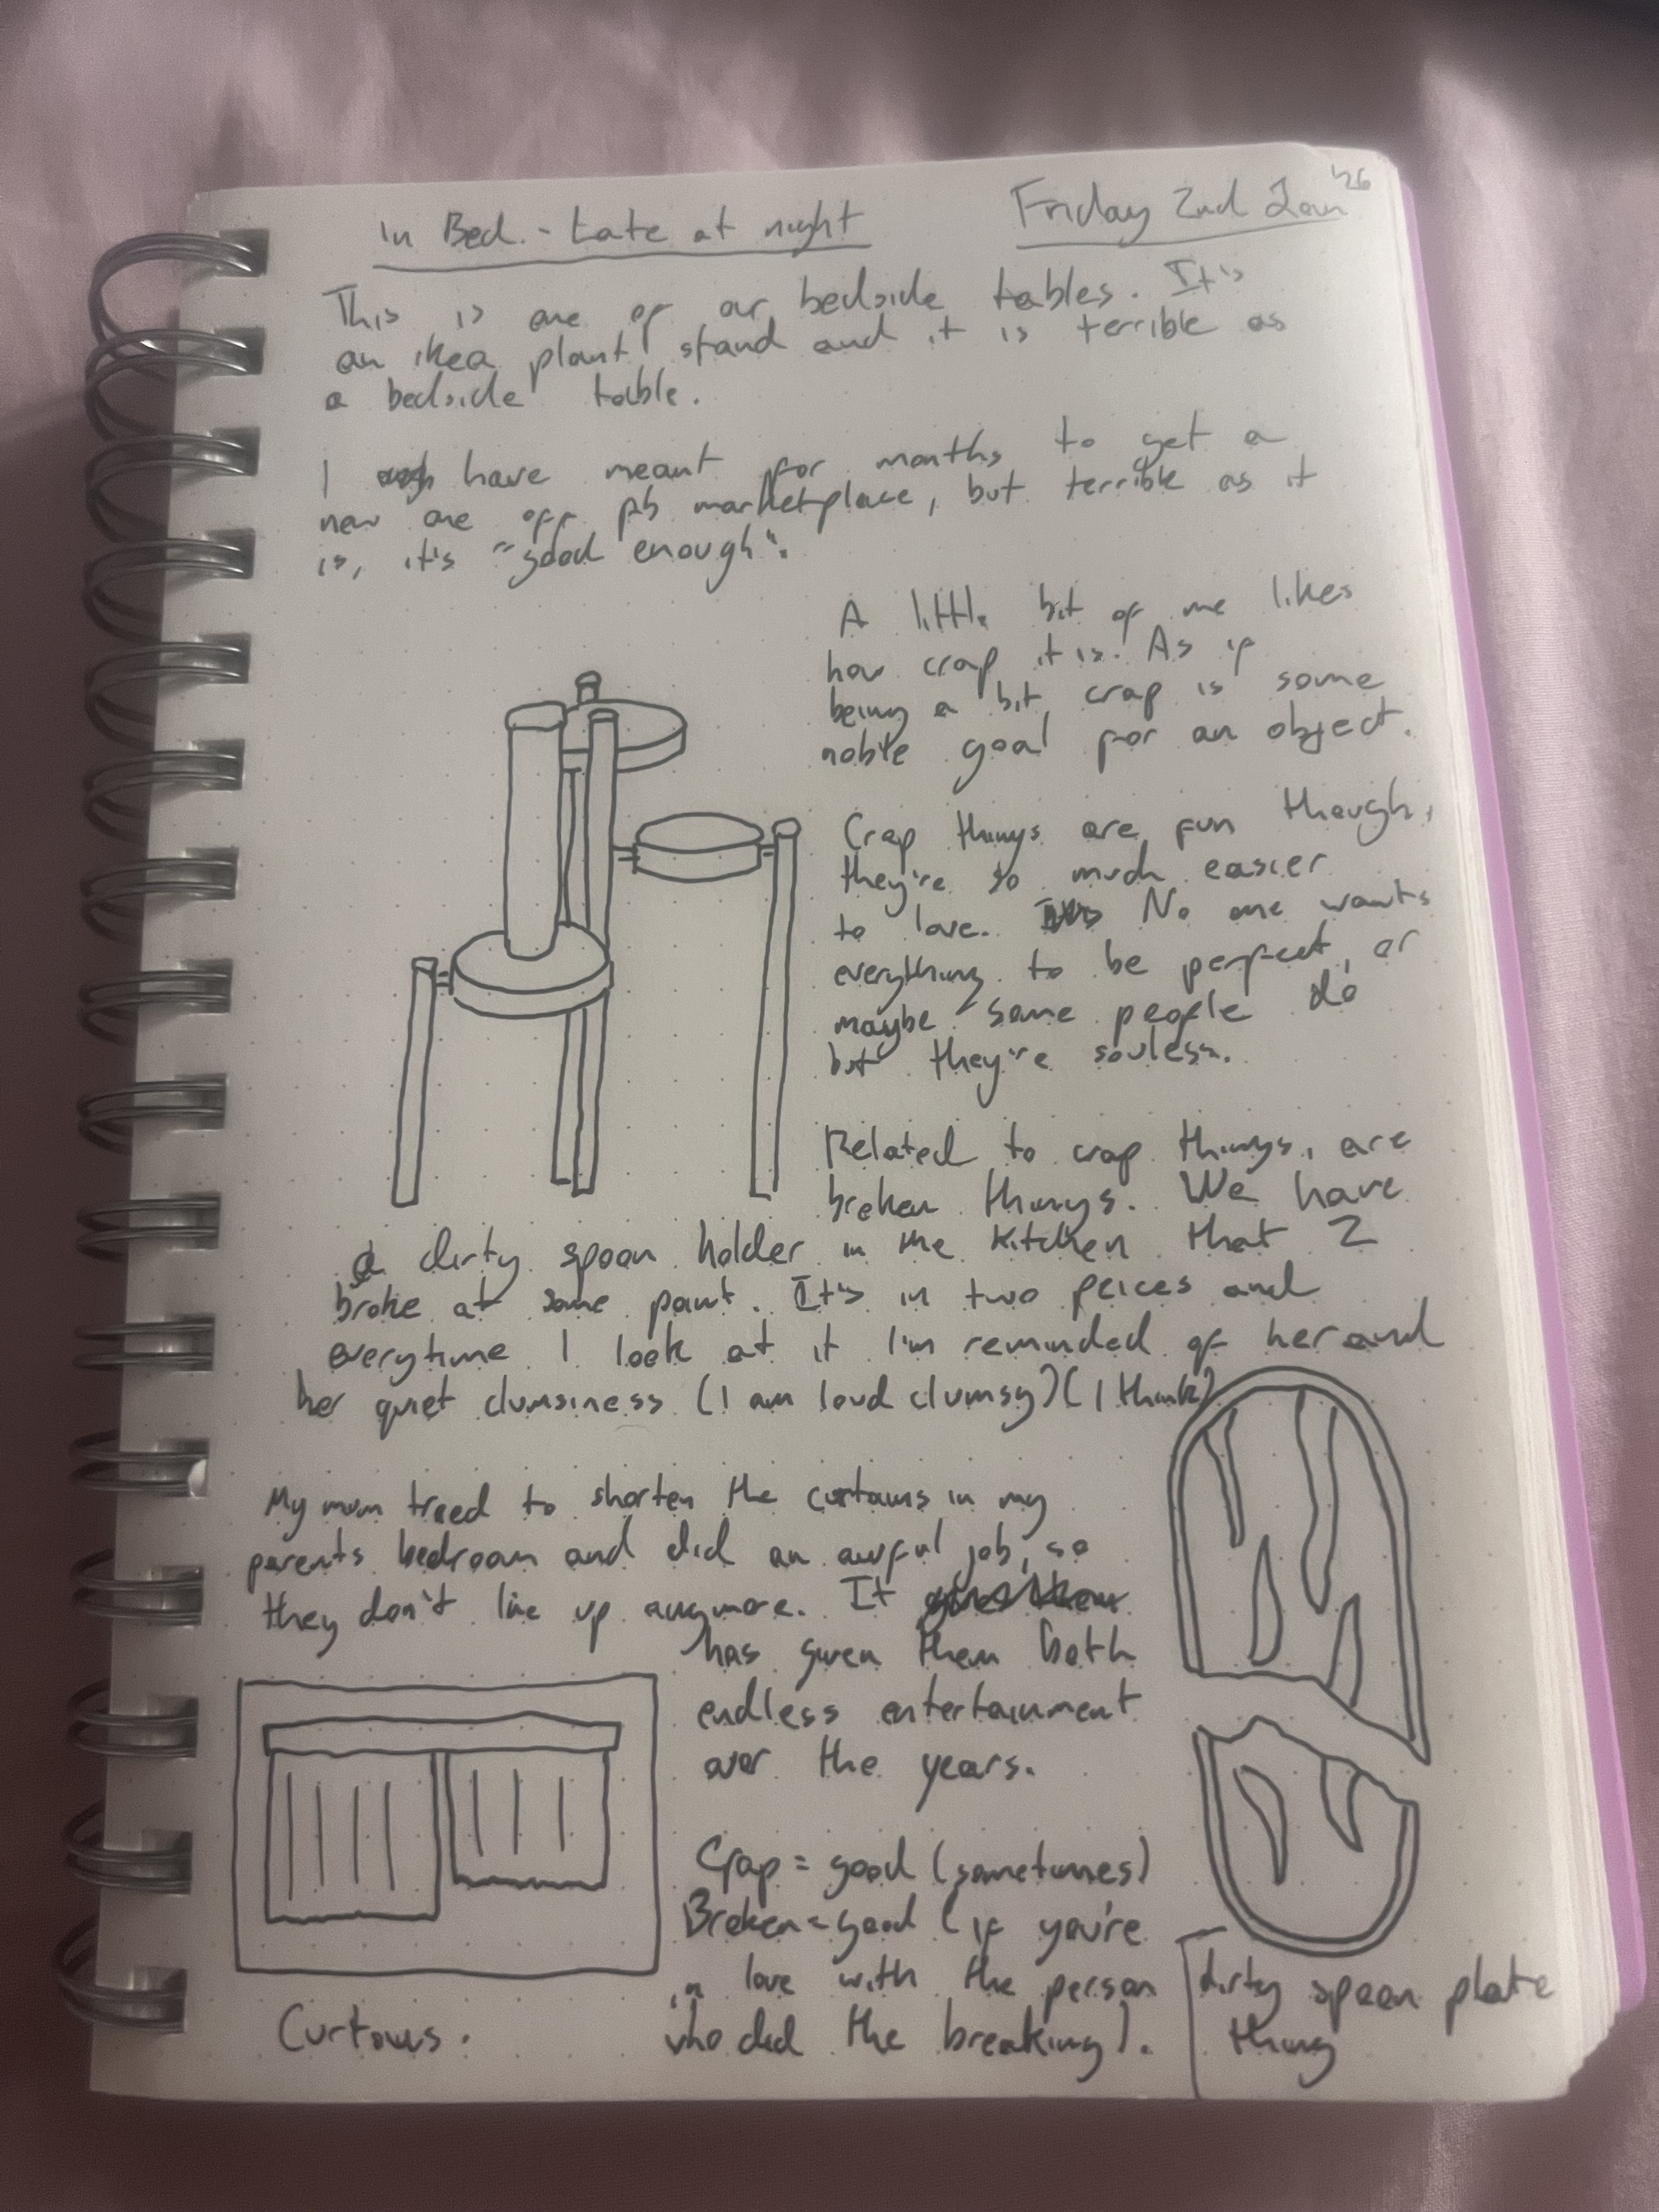 In Bed. - Late at night
Friday 2nd Jan '26
This is one of our bedside tables. It's
an ikea plant stand and it is terrible as
a bedside table.
I have meant for months to get a
new one off fb marketplace, but terrible as it
is, it's "good enough".
A little bit of me likes
how crap it is. As if
being a bit crap is some
noble goal for an object.
Crap things are fun though,
they're so much easier
to love. No one wants
everything to be perfect, or
maybe some people do
but they're souless.
Related to crap things, are
broken things. We have
a dirty spoon holder in the kitchen that Z
broke at some point. It's in two peices and
everytime I look at it I'm reminded of her and
her quiet clumsiness (I am loud clumsy)(I think)
My mum treed to shorten the curtains in my
parents bedroom and did an awful job, so
they don't line up anymore. It
has given them both
endless entertainment
over the years.
Crap = good (sometimes)
Broken = good (if you're
in love with the person
who did the breaking).
Curtains.
dirty spoon plate
thing